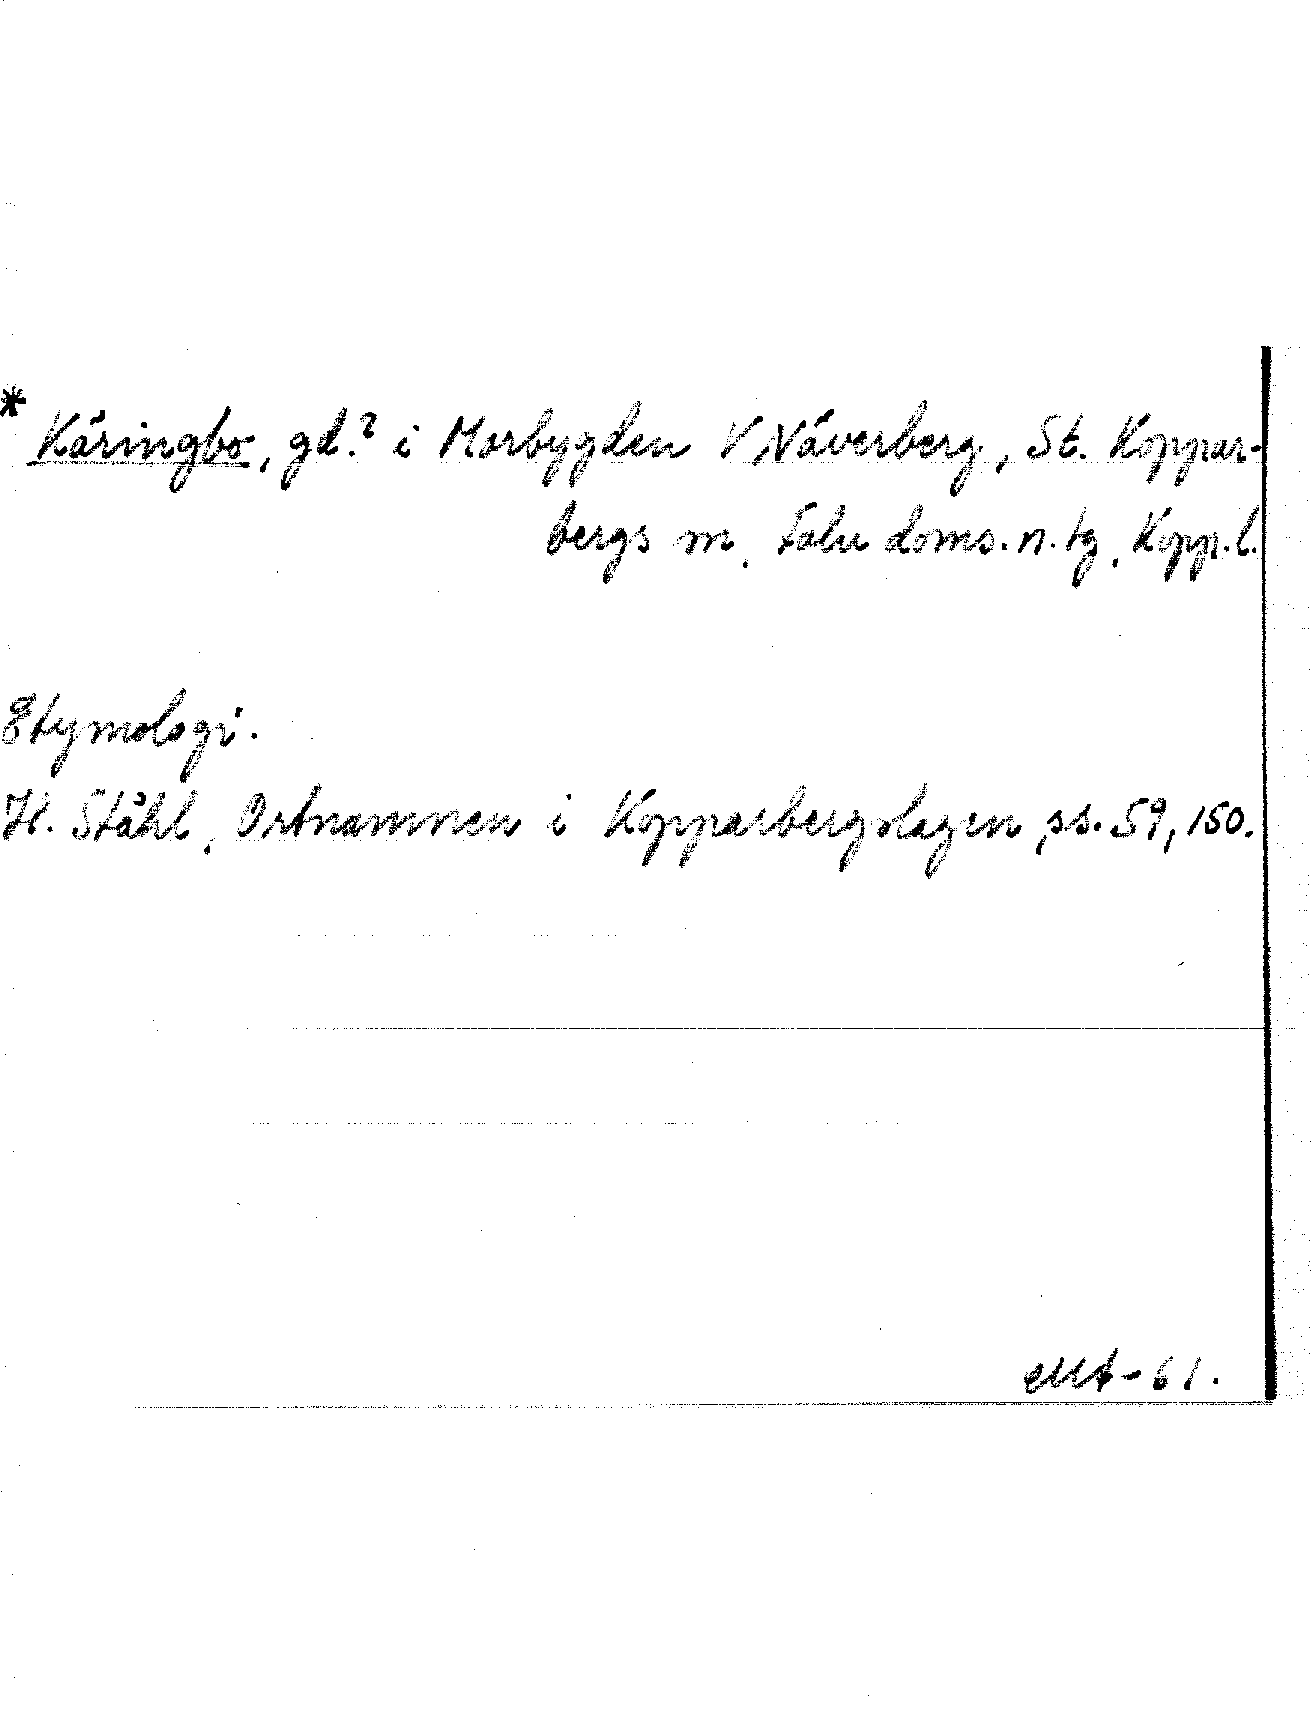 * Käringbo, gd.? i Morbygden V Näverberg, St. Koppar-
bergs sn, Falu doms. n. tg, Kopp. l.
Etymologi.
H. Ståhl, Ortnamnen i Kopparbergslagen, ss. 59, 150.
-61.